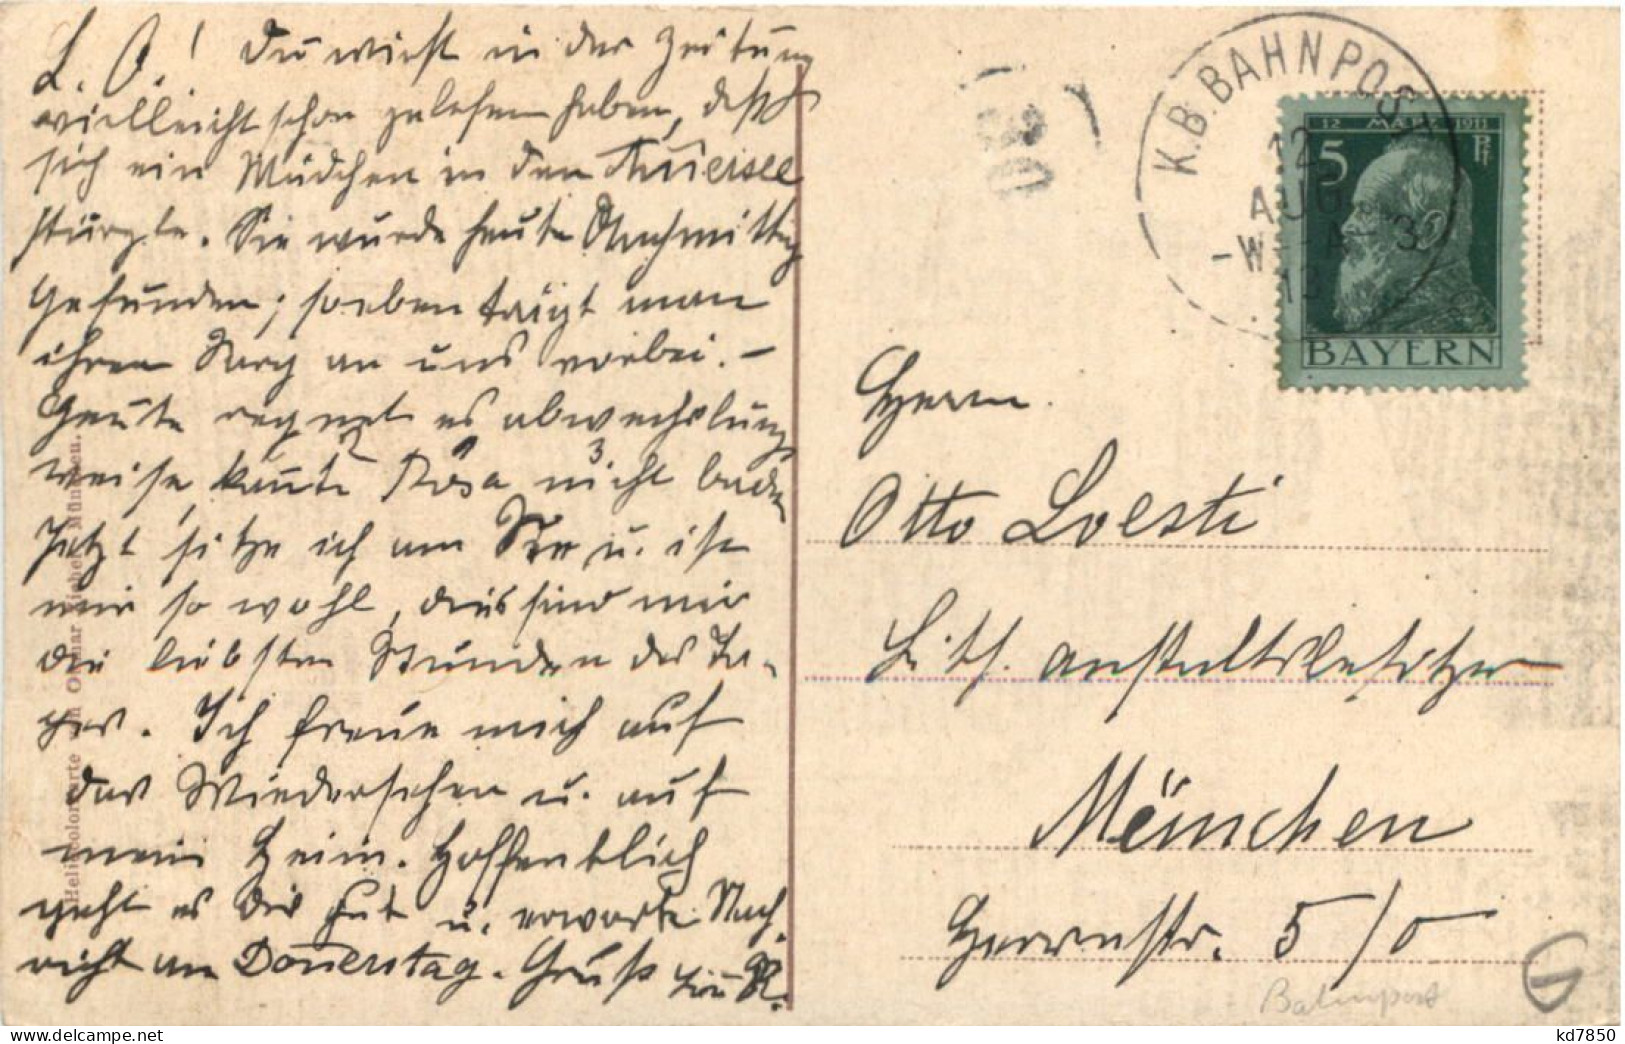 L. O.! Du wirst in der Zeitung
vielleicht schon gelesen haben, dass
sich ein Mädchen in den
stürzte. Sie wurde heute Nachmittag
gefunden; soeben trägt man
ihren Sarg an uns vorbei. –
Heute regnet es abwechslungs
weise, konnte Rosa nicht baden
Jetzt sitze ich am See u. ist
mir so wohl, dies sind mir
die liebsten Stunden des Ta-
ges. Ich freue mich auf
das Wiedersehen u. auf
mein Heim. Hoffentlich
geht es Dir gut u. erwarte Nach-
richt am Donnerstag. Gruß
K.B. BAHNPOST
12
AUG
12 MÄRZ 1911
5 Pf
BAYERN
Herrn
Otto Loesti
Lith. anstaltsbesitzer
München
Herrnstr. 5/0
Bahnpost
kd7850